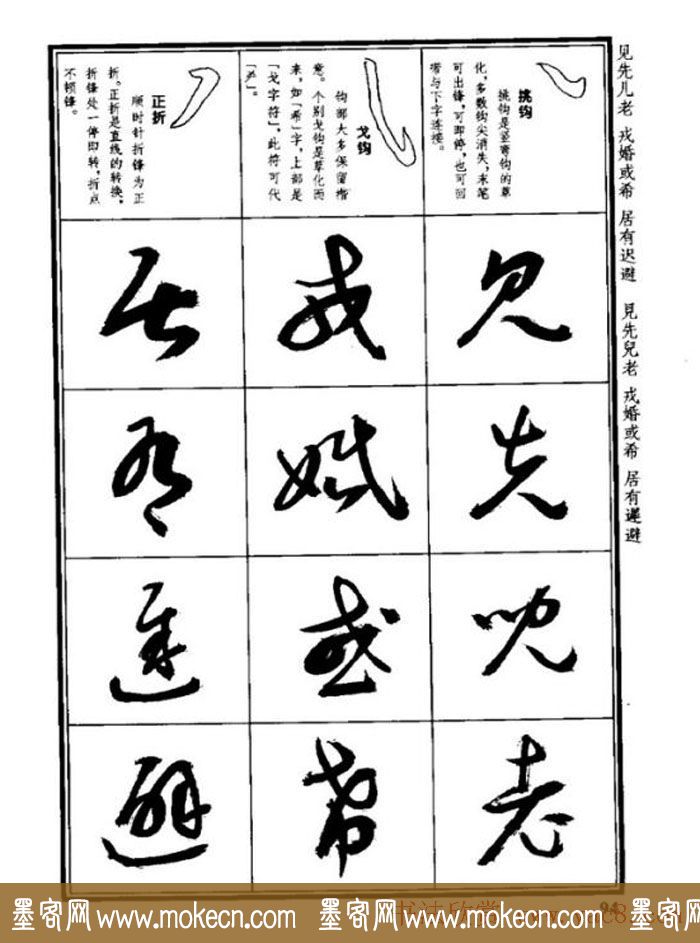 见先儿老 戎婚或希 居有迟避 見先兒老 戎婚或希 居有遲避
挑钩
挑钩是竖弯钩的草
化,多数钩尖消失,末笔
可出锋,可即停,也可回
带与下字连接。
見
先
兒
老
戈钩
钩部大多保留楷
意。个别戈钩是草化而
来,如「希」字,上部是
「戈字符」,此符可代
戎
婚
或
希
正折
顺时针折锋为正
折。正折是直线的转换,
折锋处一停即转,折点
不顿锋。
居
有
遲
避
94
书法欣赏
墨客网 www.mokecn.com 墨客网 www.mokecn.com 墨客网